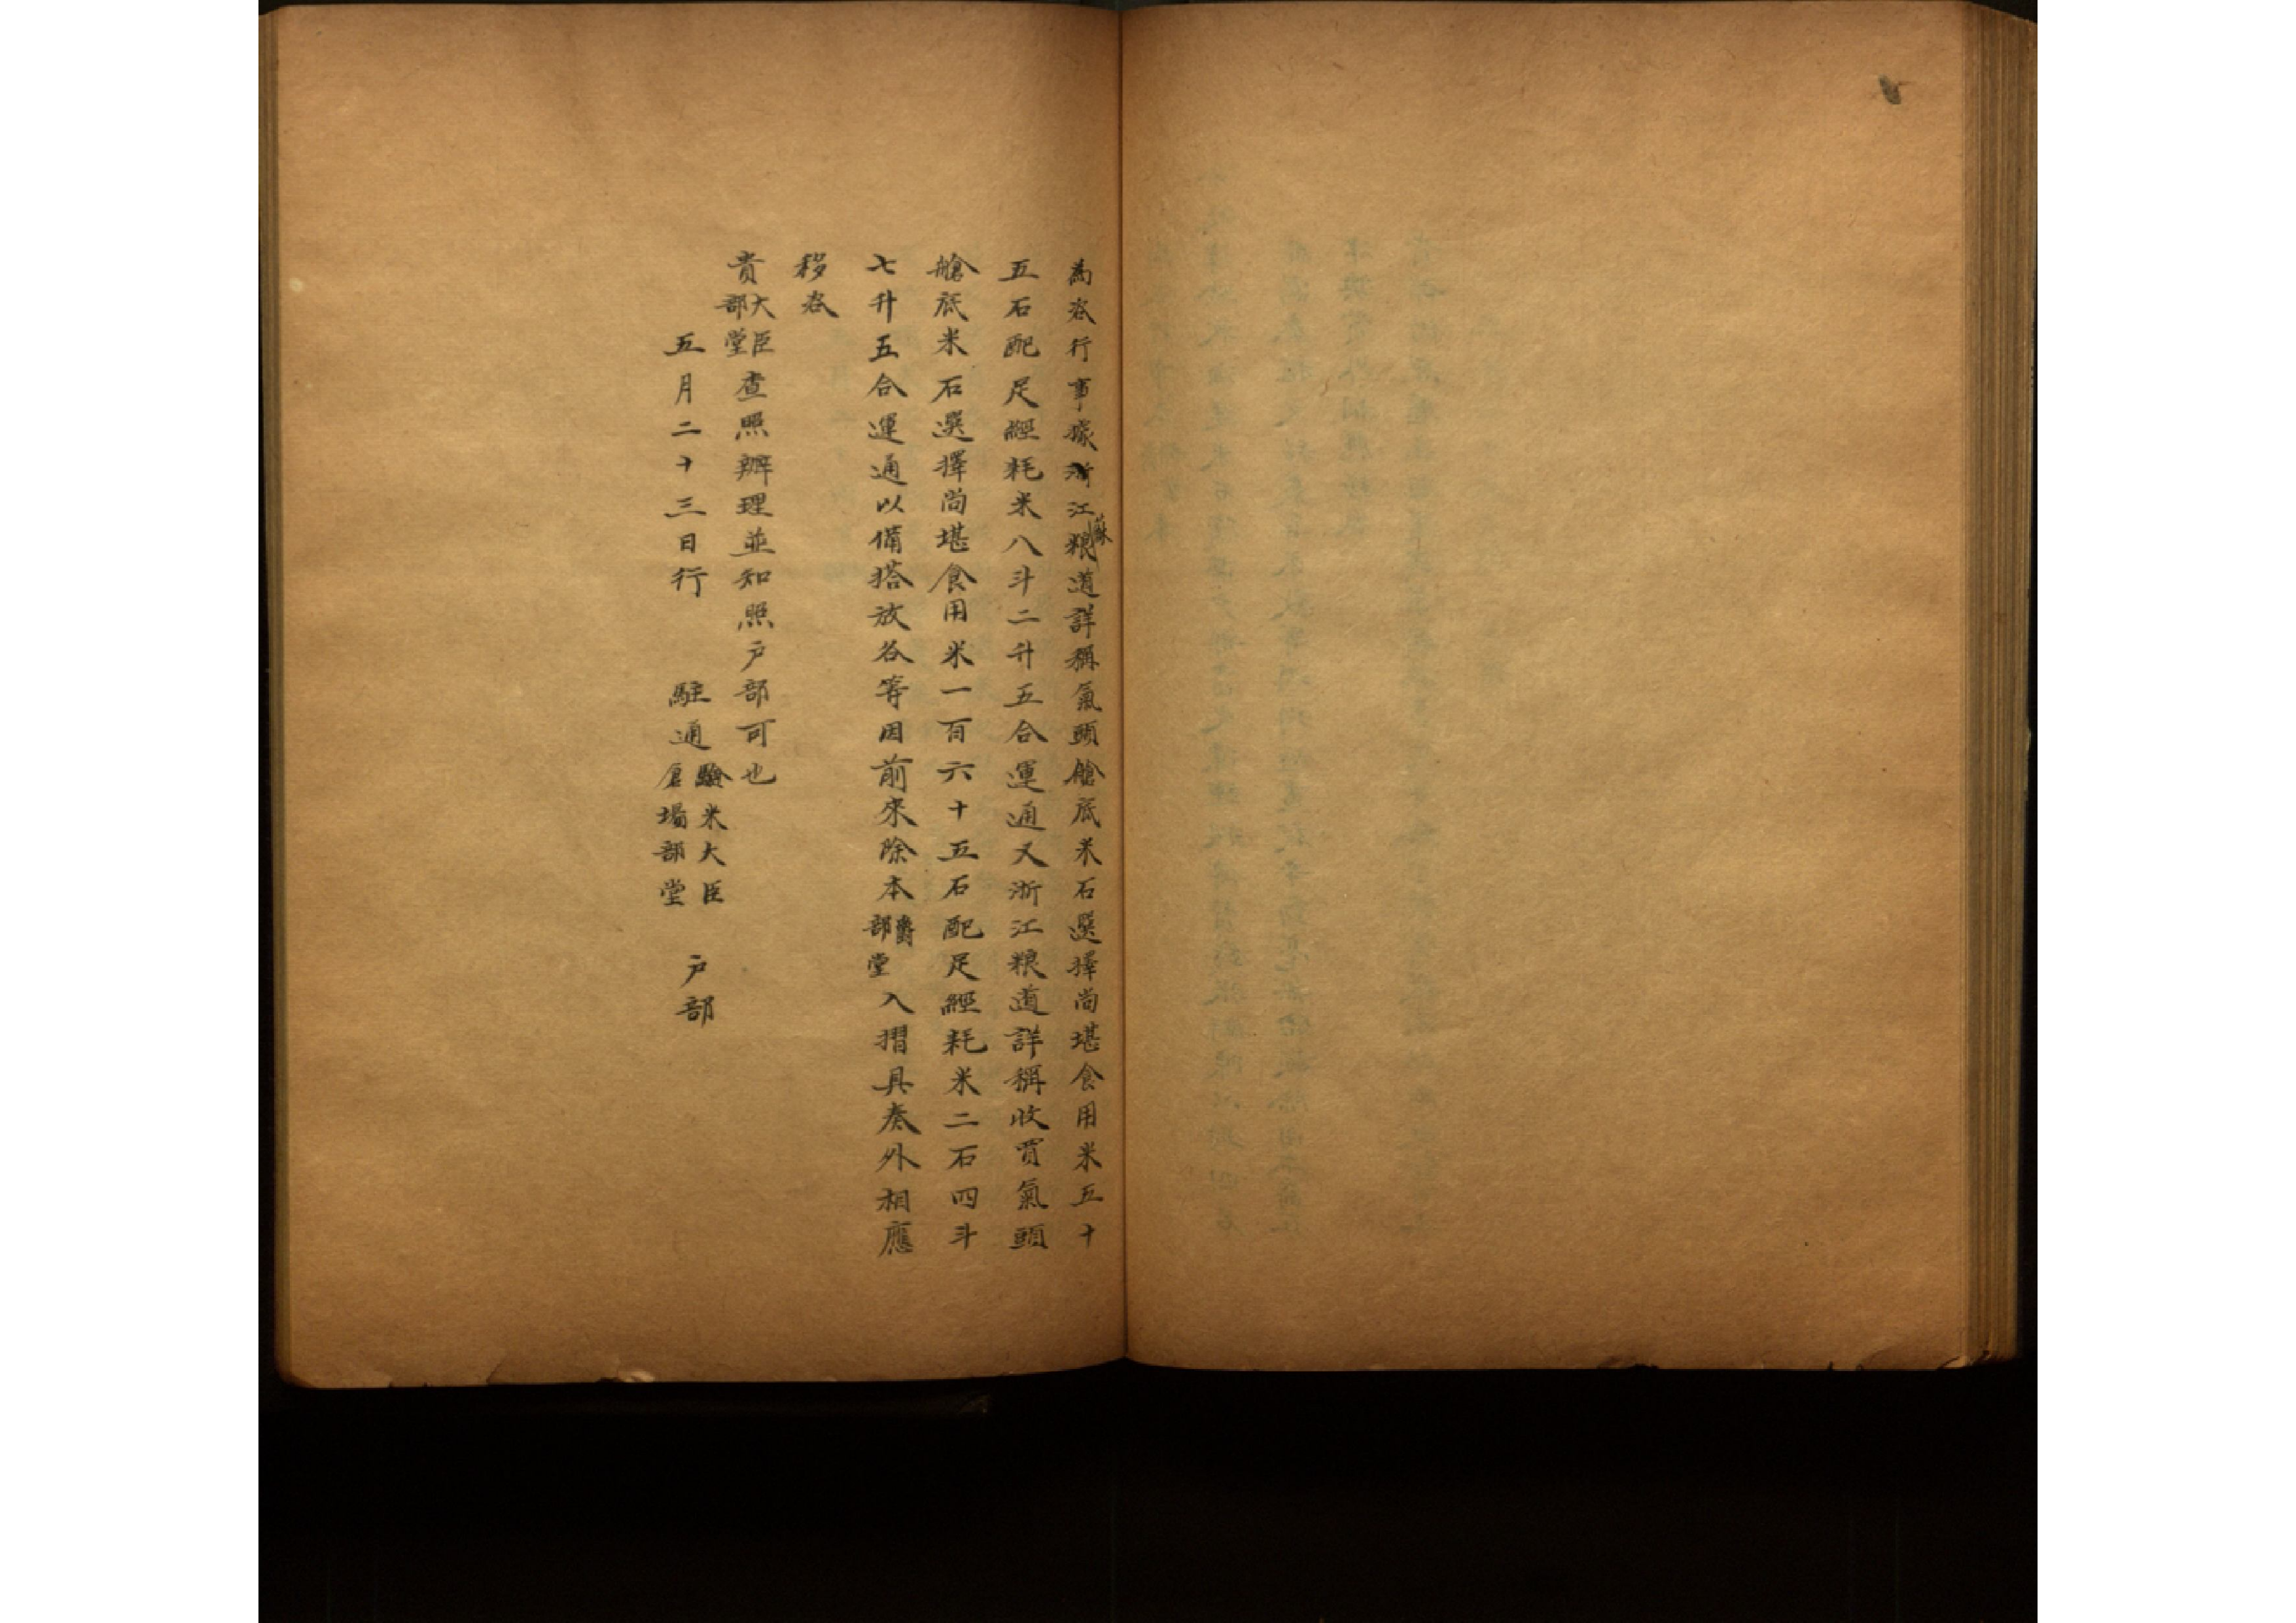 為咨行事據浙江蘇粮道詳稱氣頭艙底米石選擇尚堪食用米五十
五石配足經耗米八斗二升五合運通又浙江粮道詳稱收買氣頭
艙底米石選擇尚堪食用米一百六十五石配足經耗米二石四斗
七升五合運通以備搭放各等因前來除本爵部堂入摺具奏外相應
移咨
貴大臣部堂查照辦理並知照戶部可也
五月二十三日行 駐通驗米大臣倉場部堂 戶部